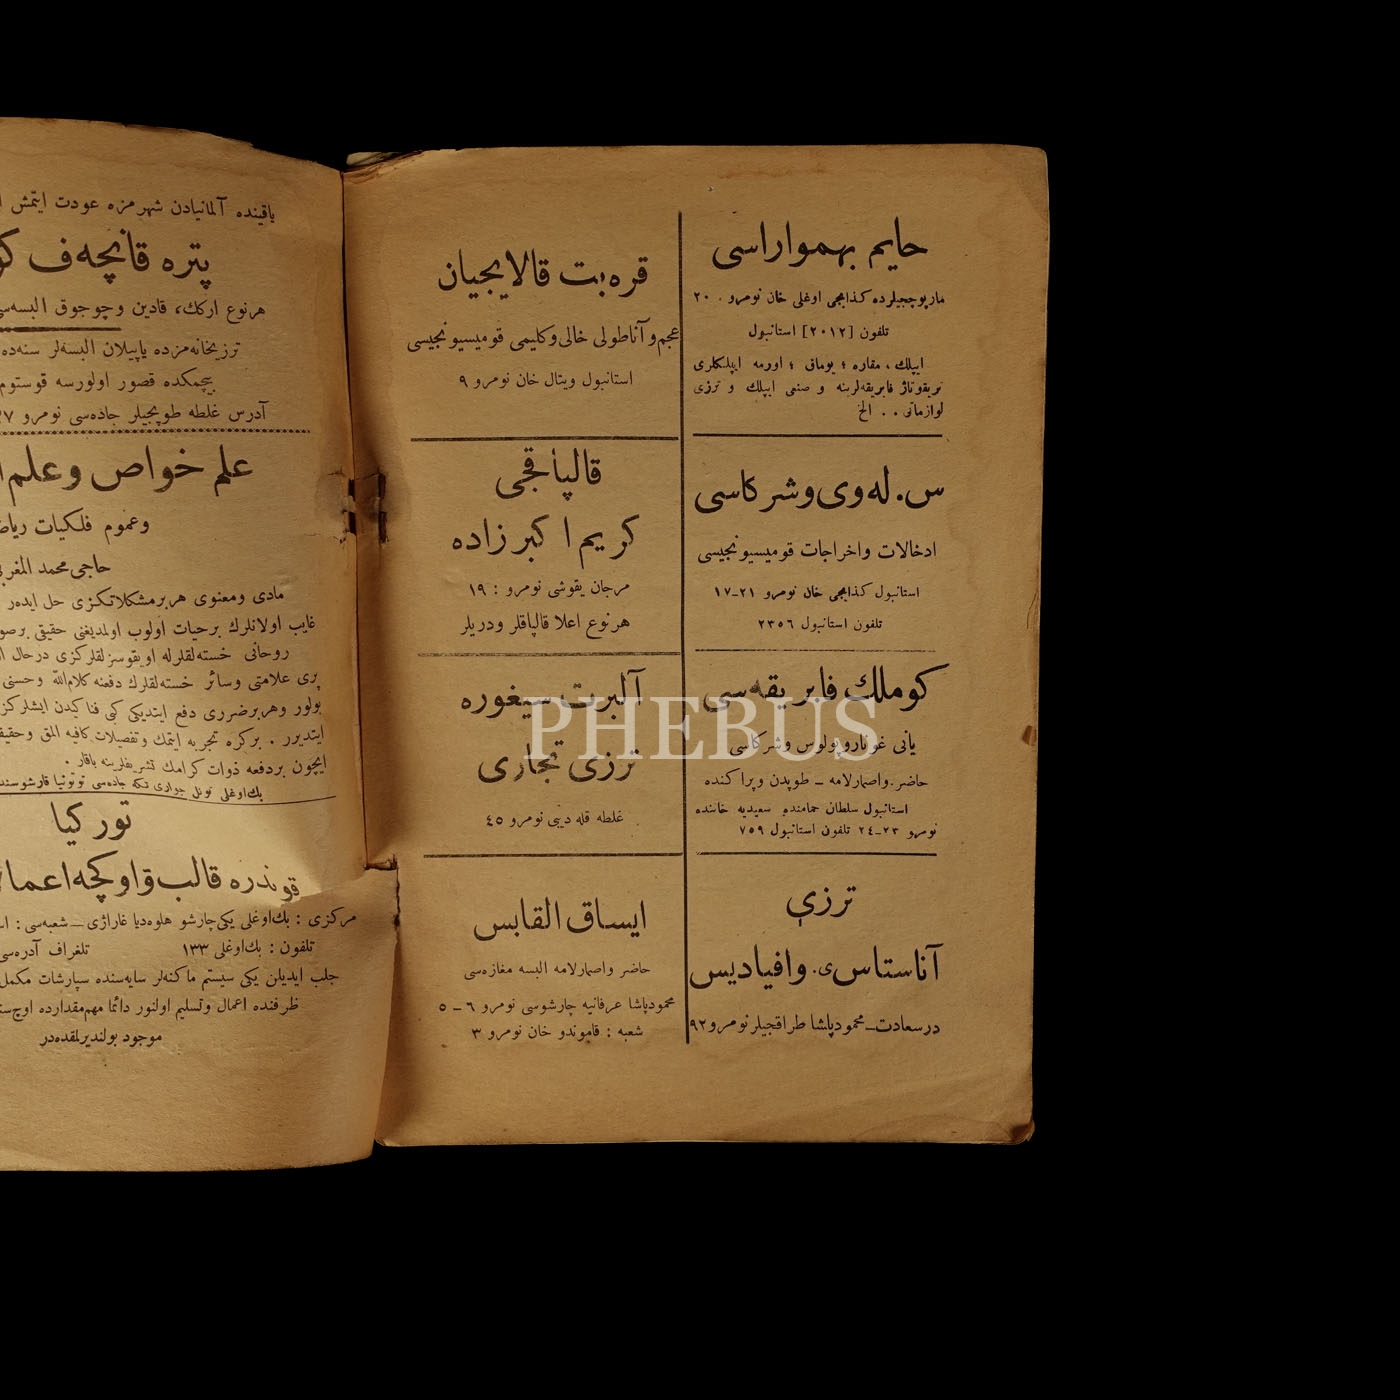 حايم بهمواراسى
مارپوچجيلرده كذابجى اوغلى خان نومرو . ٢٠
تلفون [٢٠١٢] استانبول
ايپلك ، مقاره ؛ يوماق ؛ اورمه ايپلكلرى
تريقوتاژ فابريقه‌لرينه و صنعى ايپلك و ترزى
لوازماتى . . الخ
س. له‌وى وشركاسى
ادخالات واخراجات قوميسيونجيسى
استانبول كذابجى خان نومرو ٢١ـ١٧
تلفون استانبول ٢٣٥٦
كوملك فابريقه‌سى
يانى غوناروپولوس وشركاسى
حاضر .واصمارلامه ــ طوپدن وپراكنده
استانبول سلطان حمامنده سعيديه خاننده
نومرو ٢٣ـ٢٤ تلفون استانبول ٧٥٩
ترزى
آناستاس ى. وافياديس
درسعادت ــ محمودپاشا طراقجيلر نومرو ٩٢
قره‌بت قالايجيان
عجم و آناطولى خالى وكليمى قوميسيونجيسى
استانبول ويتال خان نومرو ٩
قالپاقجى
كريم اكبرزاده
مرجان يقوشى نومرو : ١٩
هرنوع اعلا قالپاقلر ودريلر
آلبرت سيغوره
ترزى تجارى
غلطه قله ديبى نومرو ٤٥
ايساق القابس
حاضر واصمارلامه البسه مغازه‌سى
محمودپاشا عرفانيه چارشوسى نومرو ٦ ــ ٥
شعبه : قاموندو خان نومرو ٣
ياقينده آلمانيادن شهرمزه عودت ايتمش
پتره قانچه‌ف
هرنوع اركك، قادين وچوجوق البسه‌سى
ترزيخانه‌مزده ياپيلان البسه‌لر سنه‌ده
بيچمكده قصور اولورسه قوستوم
آدرس غلطه طوپجيلر جاده‌سى نومرو
علم خواص وعلم
وعموم فلكيات
حاجى محمد المغربى
مادى ومعنوى هربرمشكلاتكزى حل ايده‌ر
غايب اولانلرك برحيات اولوب اولمديغنى حقيقى
روحانى خسته‌لقلرله اويقوسزلقلركزى درحال
پرى علامتى وسائر خسته‌لقلرك دفعنه كلام‌الله وحسنى
بولور وهربرضررى دفع ايتديكى كبى فنا كيدن ايشلركزى
ايتديرر . بركره تجربه ايتمك وتفصيلات كافيه المق
ايچون بردفعه ذوات كرامك تشريفلرينه باقار .
بك اوغلى تونل جوارى تكه جاده‌سى
توركيا
قوندره قالب واوكچه اعمالا
مركزى : بك اوغلى يكى چارشو هلوه‌ديا غاراژى ــ شعبه‌سى :
تلفون : بك اوغلى ١٣٣ تلغراف آدره‌سى
جلب ايديلن يكى سيستم ماكنه‌لر سايه‌سنده سپارشات مكمل
ظرفنده اعمال وتسليم اولنور دائما مهم مقدارده
موجود بولنديرلمقده‌در
PHEBUS